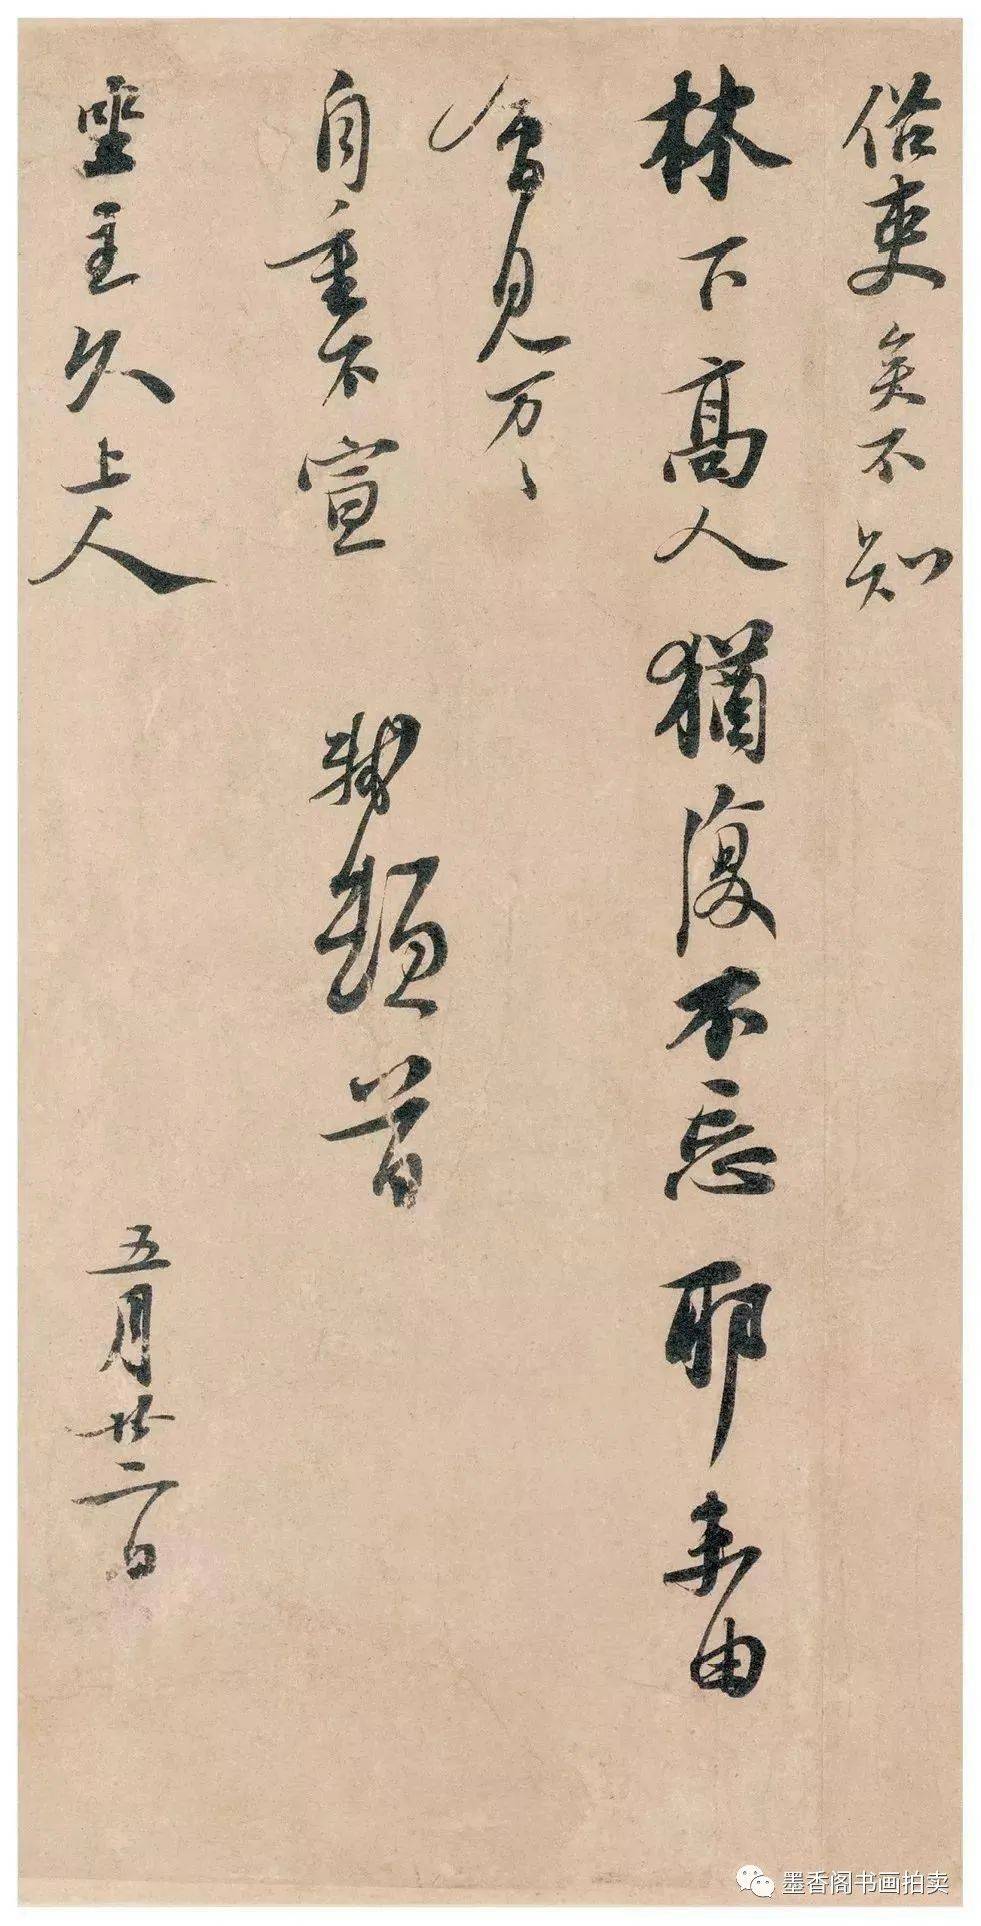 俗吏矣不知
林下高人猶復不忘耶未由
會見万〻
自重不宣 軾頓首
坐主久上人 五月廿二日
墨香阁书画拍卖